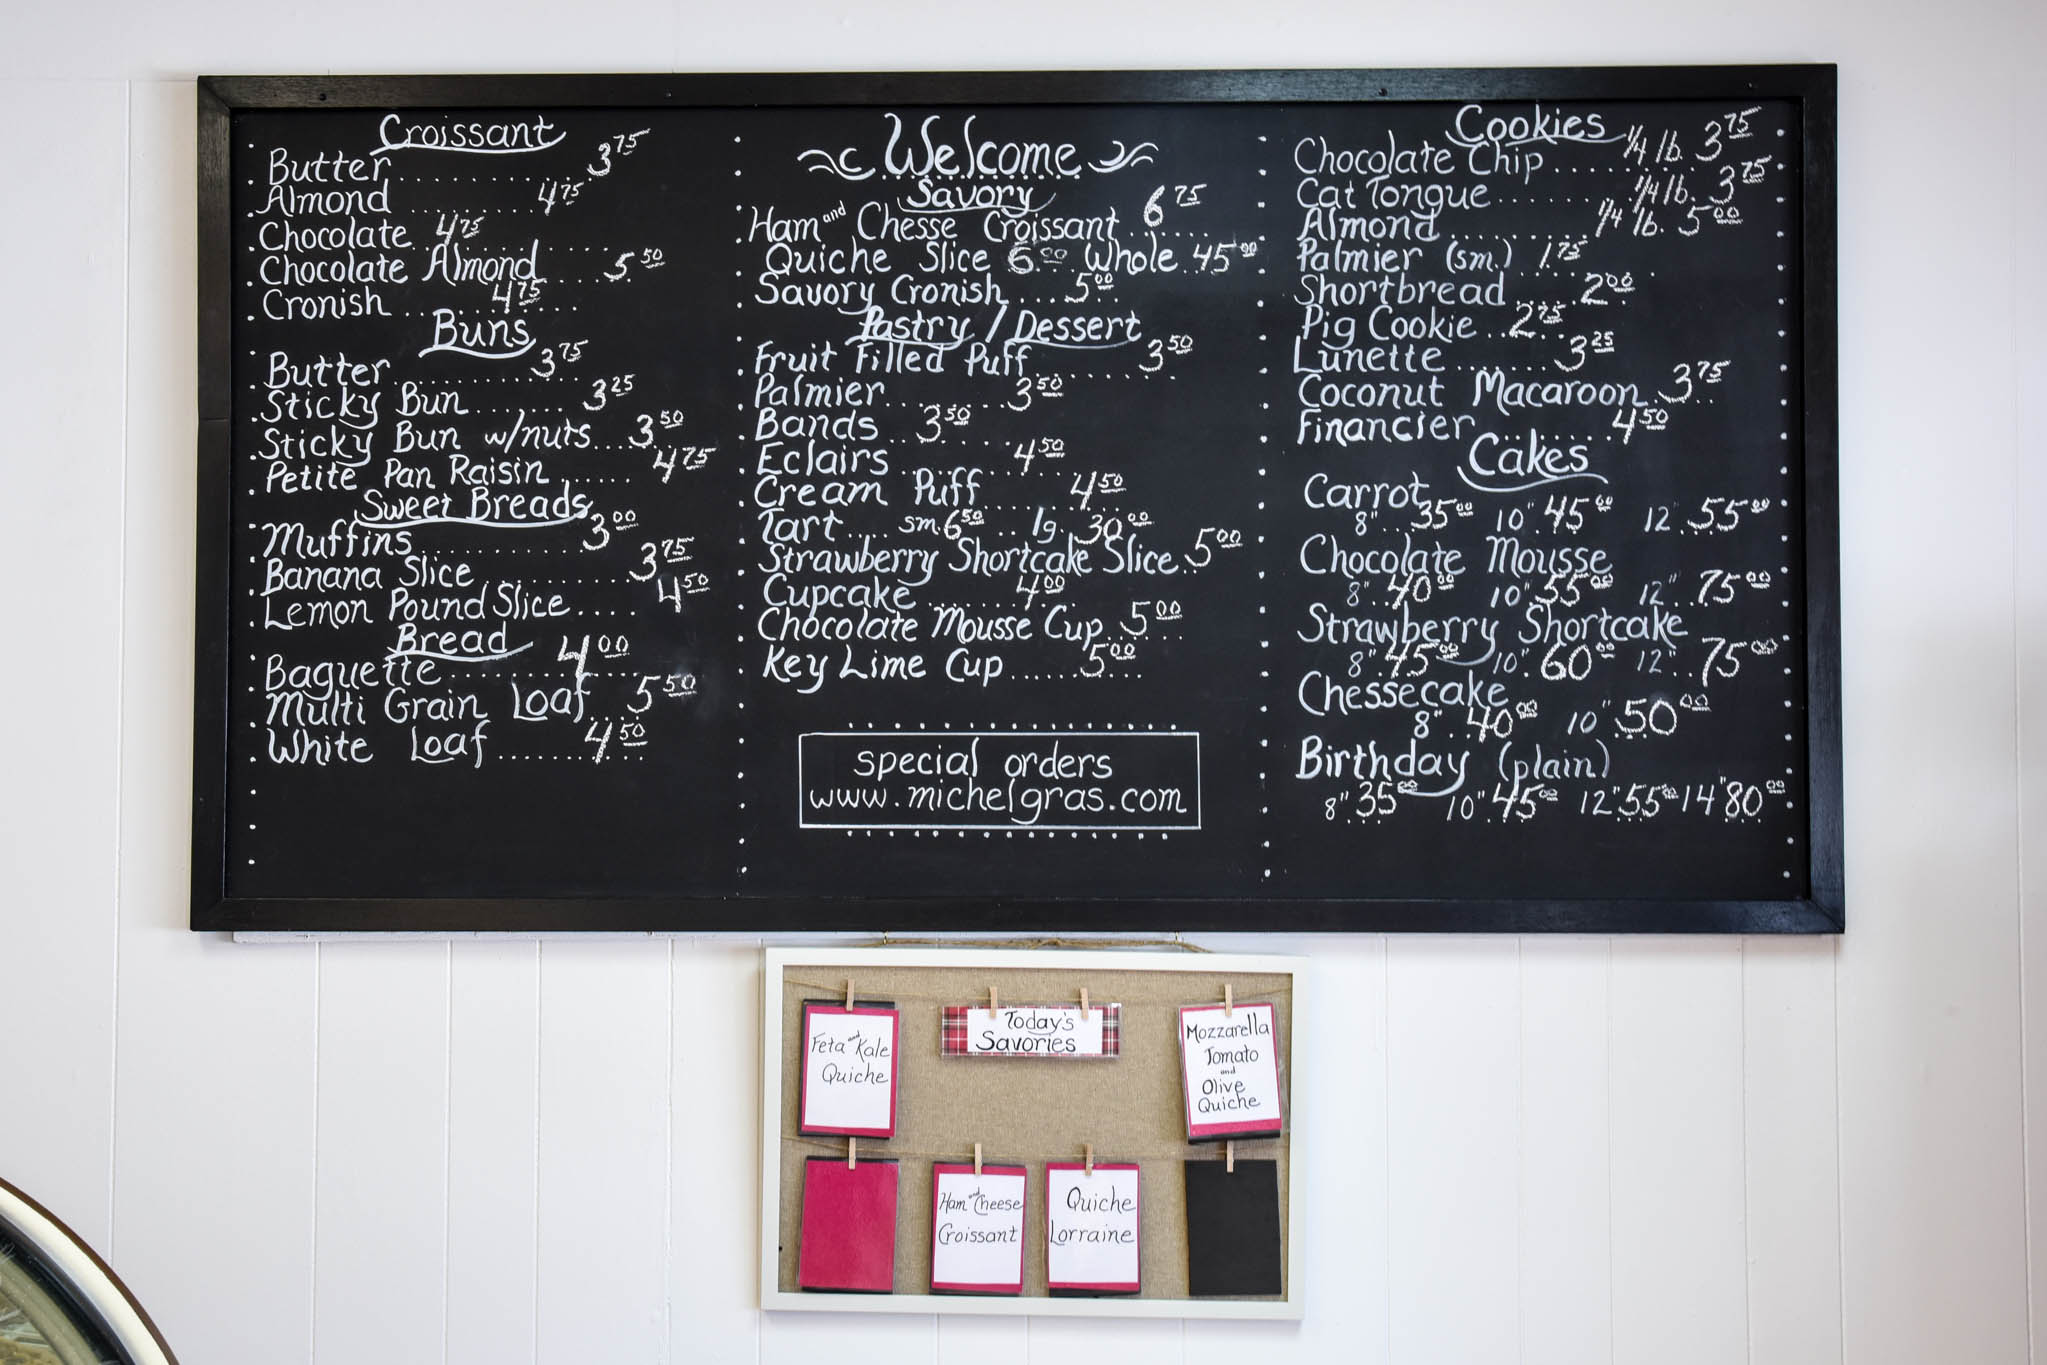 Croissant
Butter 3.75
Almond 4.75
Chocolate 4.75
Chocolate Almond 5.50
Cronish 4.75
Buns
Butter 3.75
Sticky Bun 3.25
Sticky Bun w/nuts 3.50
Petite Pan Raisin 4.75
Sweet Breads
Muffins 3.00
Banana Slice 3.75
Lemon Pound Slice 4.50
Bread
Baguette 4.00
Multi Grain Loaf 5.50
White Loaf 4.50
Welcome
Savory
Ham and Chesse Croissant 6.75
Quiche Slice 6.00 Whole 45.00
Savory Cronish 5.00
Pastry / Dessert
Fruit Filled Puff 3.50
Palmier 3.50
Bands 3.50
Eclairs 4.50
Cream Puff 4.50
Tart sm. 6.50 lg. 30.00
Strawberry Shortcake Slice 5.00
Cupcake 4.00
Chocolate Mousse Cup 5.00
Key Lime Cup 5.00
special orders
www.michelgras.com
Cookies
Chocolate Chip 1/4 lb. 3.75
Cat Tongue 1/4 lb. 3.75
Almond 1/4 lb. 5.00
Palmier (sm.) 1.75
Shortbread 2.00
Pig Cookie 2.75
Lunette 3.25
Coconut Macaroon 3.75
Financier 4.50
Cakes
Carrot
8" 35.00 10" 45.00 12" 55.00
Chocolate Mousse
8" 40.00 10" 55.00 12" 75.00
Strawberry Shortcake
8" 45.00 10" 60.00 12" 75.00
Chessecake
8" 40.00 10" 50.00
Birthday (plain)
8" 35.00 10" 45.00 12" 55.00 14" 80.00
Today's
Savories
Feta and Kale
Quiche
Mozzarella
Tomato
and
Olive
Quiche
Ham and Cheese
Croissant
Quiche
Lorraine